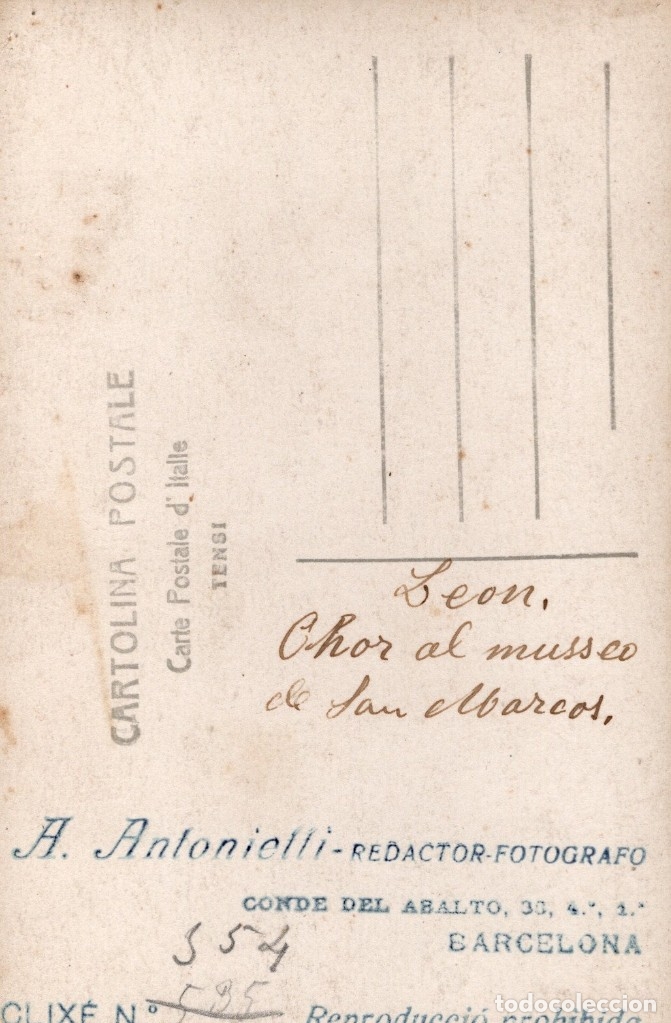 CARTOLINA POSTALE
Carte Postale d'Italie
TENSI
Leon.
Chor al musseo
de San Marcos.
A. Antonietti-REDACTOR-FOTOGRAFO
CONDE DEL ASALTO, 36, 4.º, 1.ª
BARCELONA
354
CLIXÉ N.º 535 Reproducció prohibida
todocoleccion